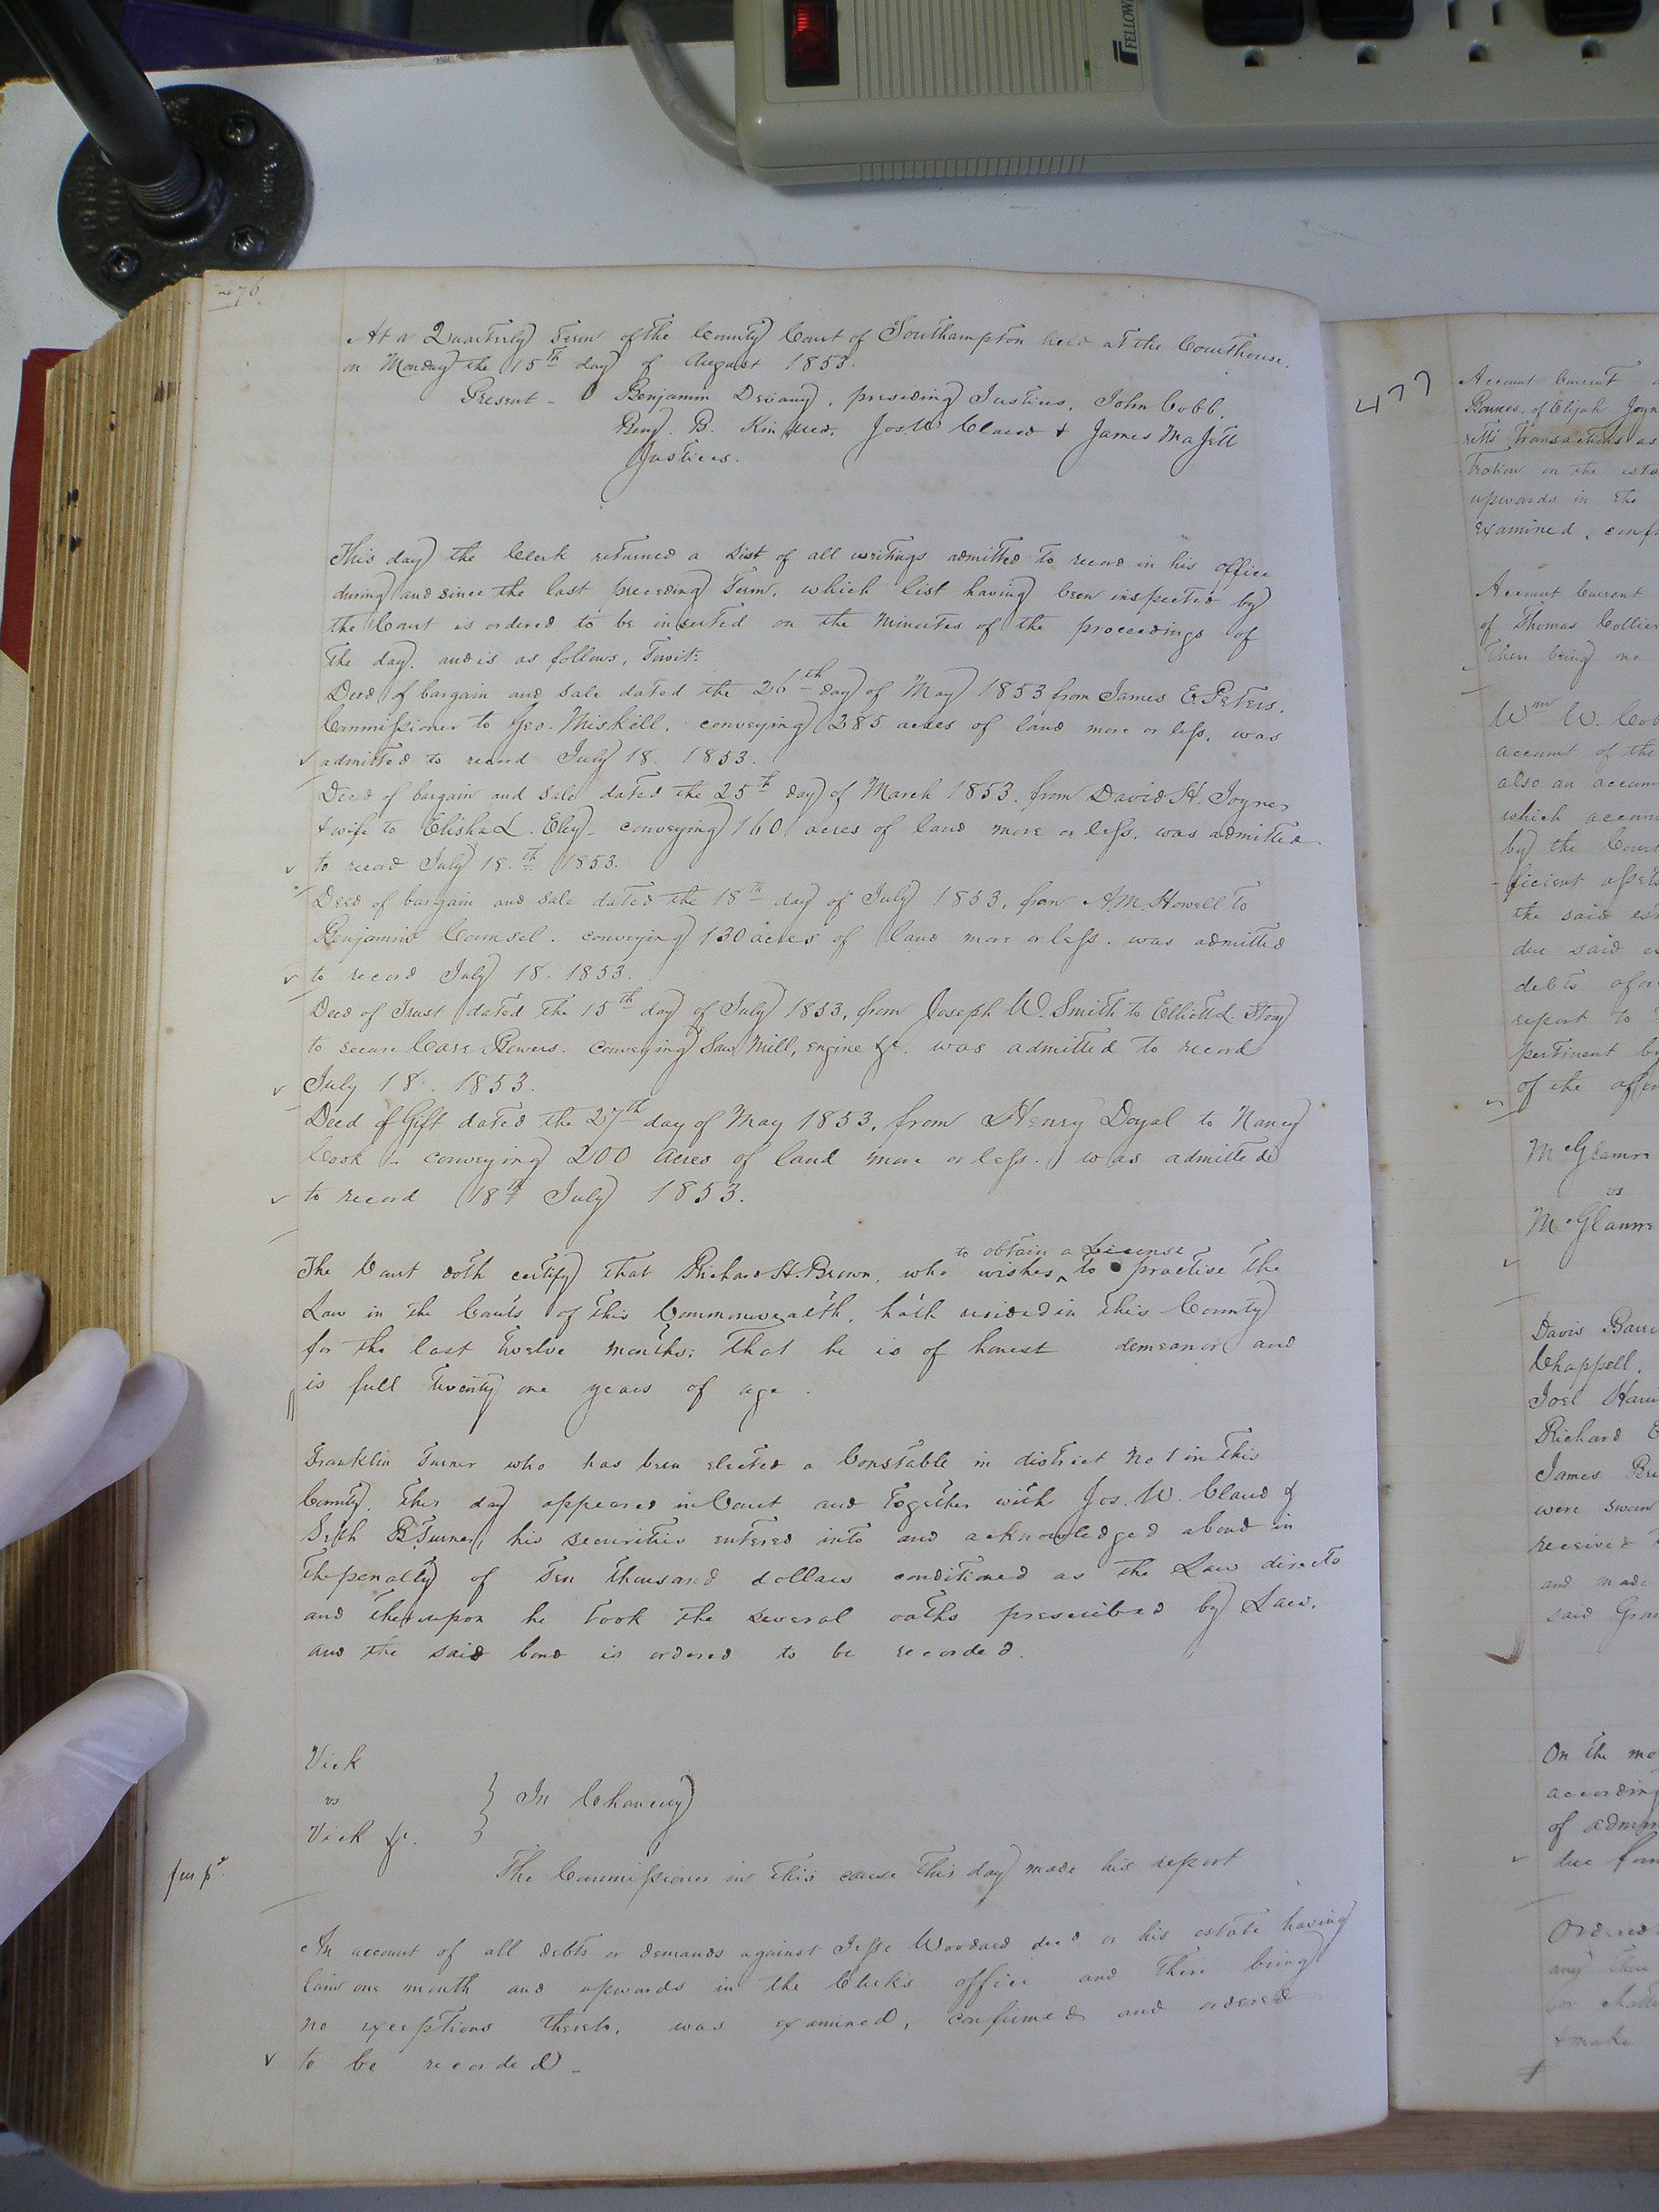 FELLOW
476
At a Quarterly Term of the County Court of Southampton held at the Courthouse,
on Monday the 15th day of August 1853.
Present - Benjamin Devany, presiding Justice, John Cobb,
Benj. B. Kindred, Jos. W Claud & James Majett
Justices.
This day the Clerk returned a List of all writings admitted to record in his office
during and since the last preceding Term, which list having been inspected by
the Court is ordered to be inserted on the minutes of the proceedings of
the day. and is as follows, Towit:
Deed of bargain and sale dated the 26th day of May 1853 from James E. Peters,
Commissioner to Geo. Miskell, conveying 285 acres of land more or less, was
admitted to record July 18. 1853.
Deed of bargain and sale dated the 25th day of March 1853. from David H. Joyner
& wife to Elisha L. Eley - conveying 160 acres of land more or less, was admitted
to record July 18.th 1853.
Deed of bargain and sale dated the 18th day of July 1853, from A.M. Howell to
Benjamin Counsel. conveying 130 acres of land more or less. was admitted
to record July 18. 1853.
Deed of Trust dated the 15th day of July 1853, from Joseph W. Smith to Elliott L. Story
to secure Bowers. conveying Saw Mill, engine &c. was admitted to record
July 18. 1853.
Deed of Gift dated the 27th day of May 1853, from Henry Doyal to Nancy
Cook - conveying 200 acres of land more or less. was admitted
to record 18th July 1853.
to obtain a License
The Court doth certify that Richard H. Brown, who wishes ^ to practise the
Law in the Courts of this Commonwealth, hath resided in this County
for the last twelve months; that he is of honest demeanor and
is full twenty one years of age.
Franklin Turner who has been elected a Constable in district No 1 in this
County, this day appeared in Court and together with Jos. W. Claud &
B Turner, his securities entered into and acknowledged a bond in
the penalty of Ten thousand dollars conditioned as the Law directs
and thereupon he took the several oaths prescribed by Law,
and the said bond is ordered to be recorded.
Vick
vs } In Chancery
Vick &c.
The Commissioner in this cause this day made his report
An account of all debts or demands against Jesse Woodard decd or his estate having
lain one month and upwards in the Clerk's office and there being
no exceptions thereto, was examined, confirmed and ordered
to be recorded -
477
Account Current
of Elijah Joyn
Transactions as
on the esta
upwards in the
examined, confi
Account Current
of Thomas Collier
there being no
Wm W. Cob
account of the
also an accoun
which accoun
by the Court
ficient assets
the said est
due said
debts afor
report to
pertinent
of the
McGlamr
vs
McGlamr
Davis
Chappell,
Joel
Richard
James
were sworn
receive
and made
said Gran
On the mo
according
of admin
due form
Ordered
any